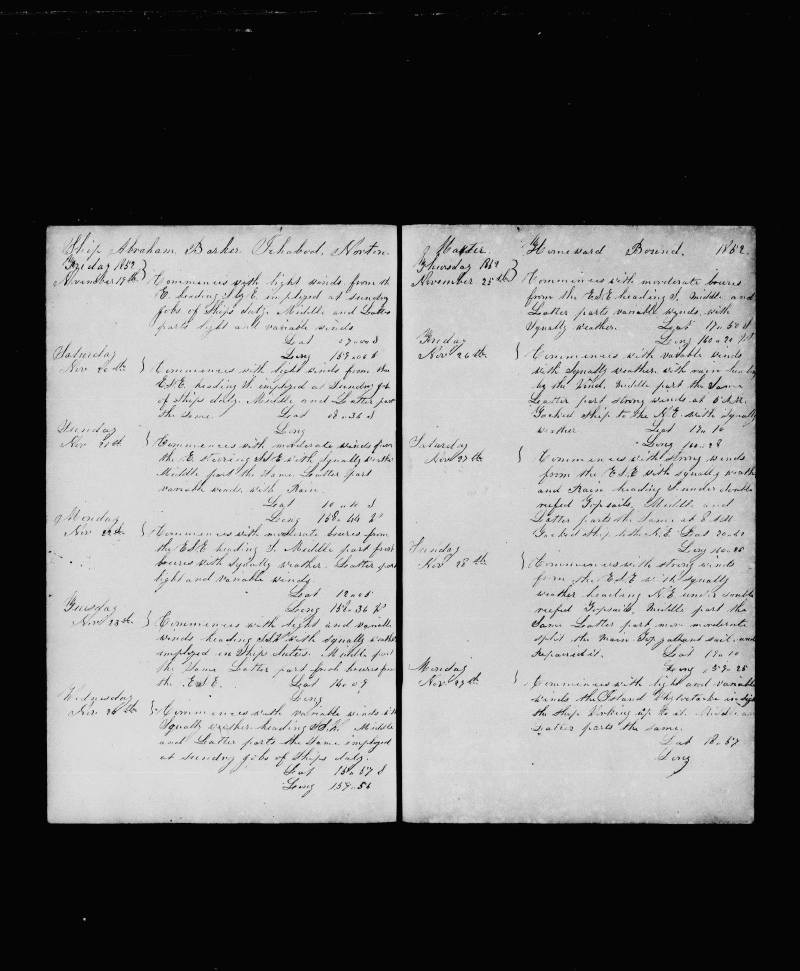 Ship Abraham Barker Ichabod Norton
Friday 1852
November 19th } Commences with light winds from the
E. heading S by E. imployed at sundry
jobs of Ships duty. Middle and Latter
parts light and variable winds
Lat 07"00 S
Long 159"06
Saturday
Nov 20th } Commences with light winds from the
ESE. heading S. imployed at Sundry jobs
of Ships duty. Middle and Latter part
the Same. Lat 08"36 S
Long
Sunday
Nov 21st } Commences with moderate winds from
the E steering SSE with Squally weather
Middle part the Same Latter part
variable winds with Rain.
Lat 10"40 S
Long 158"44
Monday
Nov 22nd } Commences with moderate breezes from
the ESE heading S. Middle part fresh
breezes with Squally weather. Latter part
light and variable winds
Lat 12"05
Long 158"36
Tuesday
Nov 23th } Commences with light and variable
winds heading SSE with Squally weather
imployed in Ships duties. Middle part
the Same Latter part fresh breezes from
the ESE. Lat 14"09
Long
Wednesday
Nov 24th } Commences with variable winds with
Squally weather heading Middle
and Latter parts the Same imployed
at sundry jobs of Ships duty.
Lat 15"57 S
Long 159"56
Master Homeward Bound. 1852
Thursday 1852
November 25th } Commences with moderate breezes
from the ESE heading S. Middle and
Latter parts variable winds with
Squally weather. Lat 17"50 S
Long 160"20
Friday
Nov 26th } Commences with variable winds
with Squally weather, with rain
by the Wind. Middle part the Same
Latter part strong winds at
Tacked Ship to the N.E. with Squally
weather Lat
Long 160"28
Saturday
Nov 27th } Commences with strong winds
from the ESE with squally weather
and Rain heading S under double
reefed Topsails. Middle and
Latter parts the Same at
Tacked Ship to the N.E. Lat 20"40
Long 160"25
Sunday
Nov 28th } Commences with strong winds
from the ESE with Squally
weather heading N.E. under double
reefed Topsails. Middle part the
Same Latter part more moderate
Split the Main Top gallant sail and
repaired it. Lat 19"10
Long 159"25
Monday
Nov 29th } Commences with light and variable
winds the Island in sight
the Ship Working up to it. Middle and
Latter parts the Same.
Lat 18"57
Long